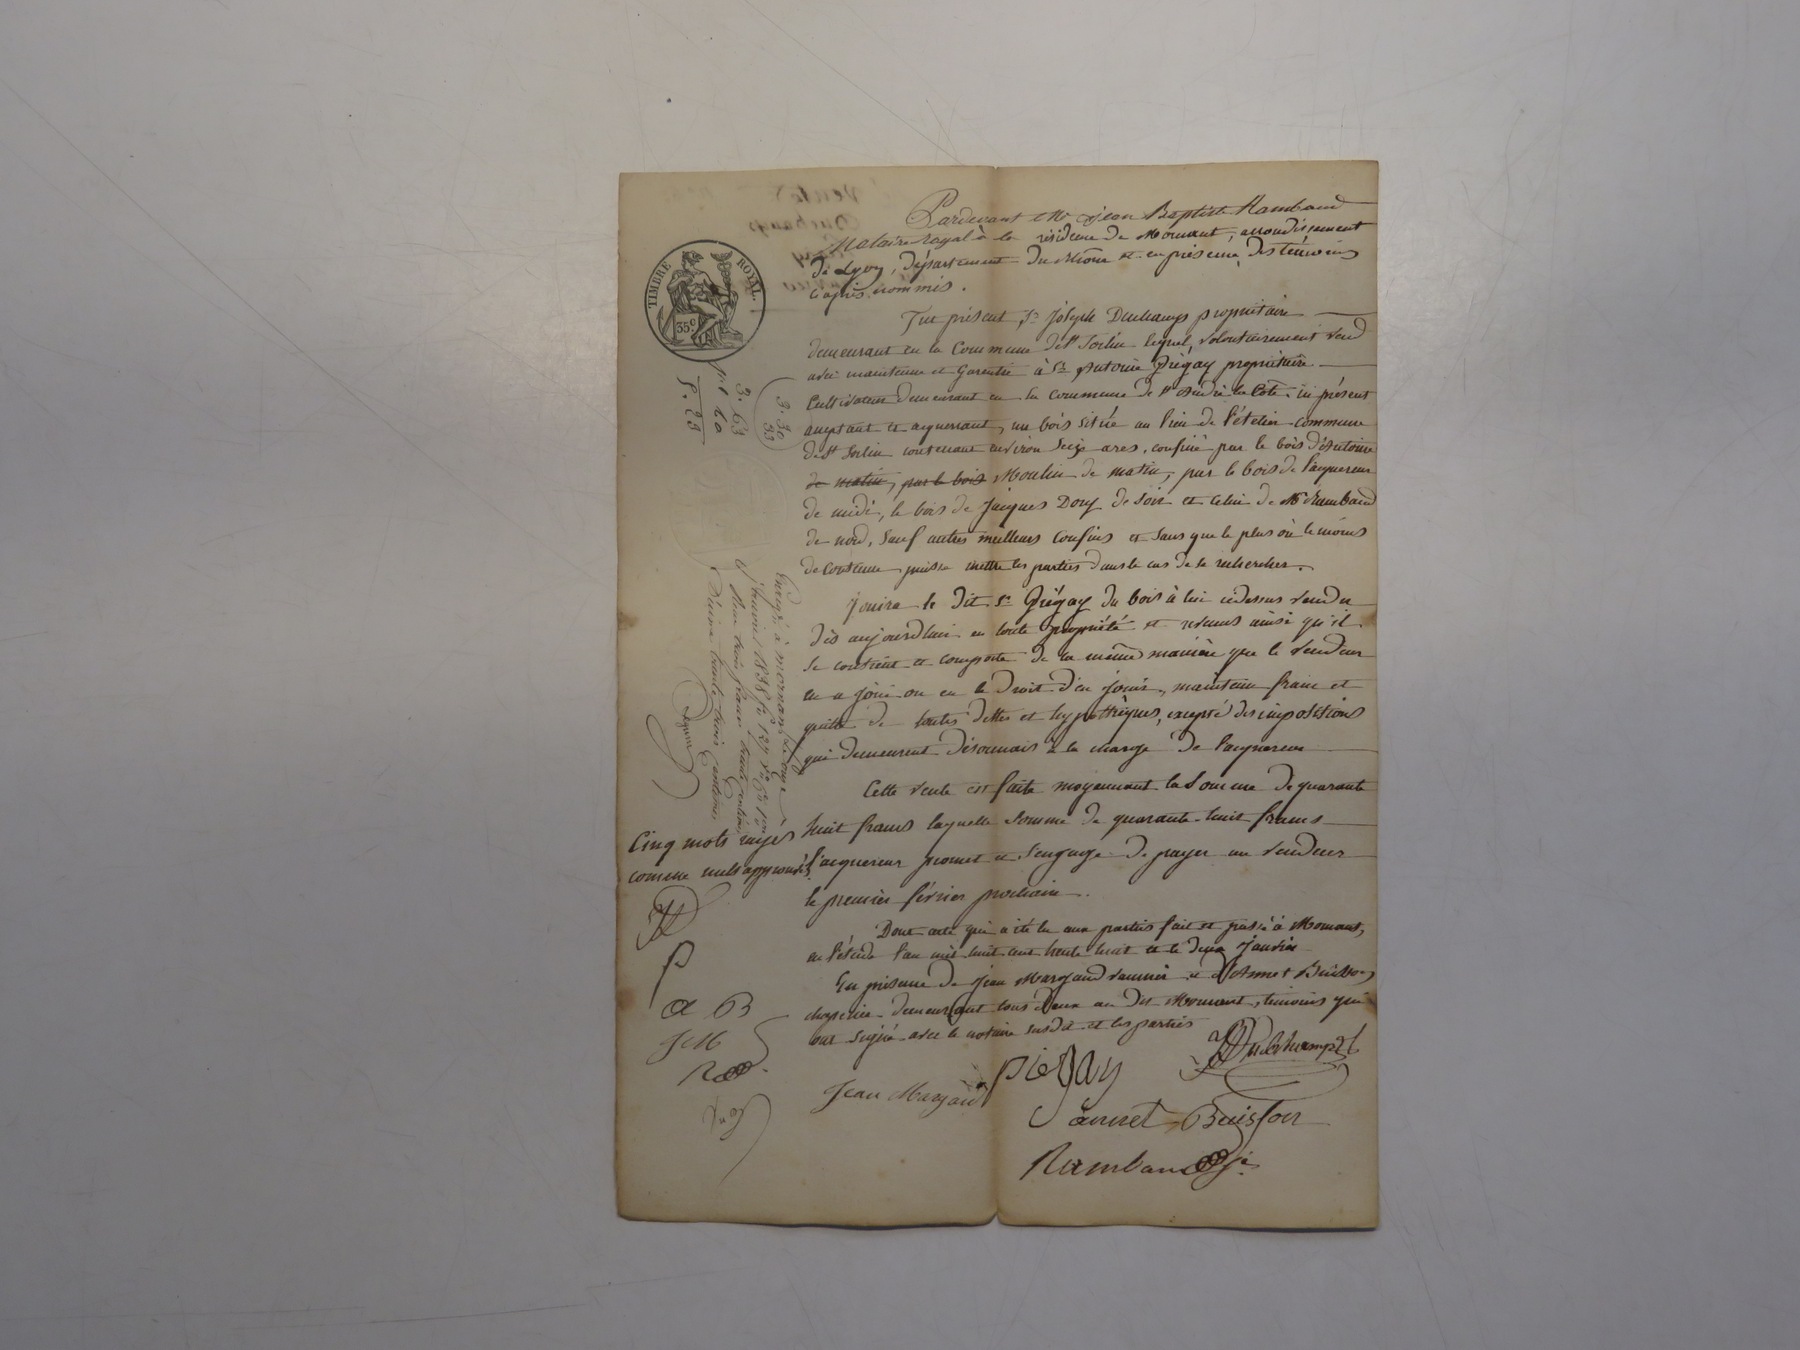 Pardevant Me Jean Baptiste Rambaud
Notaire Royal à la résidence de Mornant, arrondissement
de Lyon, département du Rhône et en présence des témoins
ci après nommés.
TIMBRE ROYAL.
35c
Fut présent Sr Joseph Duchamps propriétaire
demeurant en la Commune de St Sorlin lequel, volontairement vend
avec maintenue et Garentie à Sr Antoine Piégay propriétaire
Cultivateur demeurant en la commune de St André la Cote ici présent
acceptant et acquerrant, un bois situé au lieu de commune
de St Sorlin contenant environ Seize ares, confiné par le bois d'Antoine
de matin, par le bois Moulin de matin, par le bois de l'acquereur
de midi, le bois de Jacques de soir et celui de Mr Rambaud
de nord, sauf autres meilleurs confins et sans que le plus où le moins
de Contenue puisse mettre les parties dans le cas de se rechercher.
Jouira le dit Sr Piégay du bois à lui cidessus vendu
dès aujourdhui en toute propriété et revenus ainsi qu'il
se contient et comporte de la même manière que le vendeur
en a joui ou eu le droit d'en jouir, maintenu franc et
quitte de toutes dettes et hypothèques, excepté des impositions
qui demeurent désormais à la charge de l'acquereur
Cette vente est faite moyennant la Somme de quarante
huit francs laquelle somme de quarante huit francs
l'acquereur promet et s'engage de payer au vendeur
le premier février prochain.
Dont acte qui a été lu aux parties fait et passé à Mornant,
en l'étude l'an mil huit cent trente huit et le deux Janvier
En présence de Jean Marjaud et d'Annet Buisson
demeurant tous deux au dit Mornant, témoins qui
ont signé avec le notaire susdit et les parties
piegay
Jean Marjaud
annet Buisson
Rambaud
Cinq mots rayés
comme nuls approuvés
P
a B
JM
3. 30
33
3. 63
1. 60
5. 23